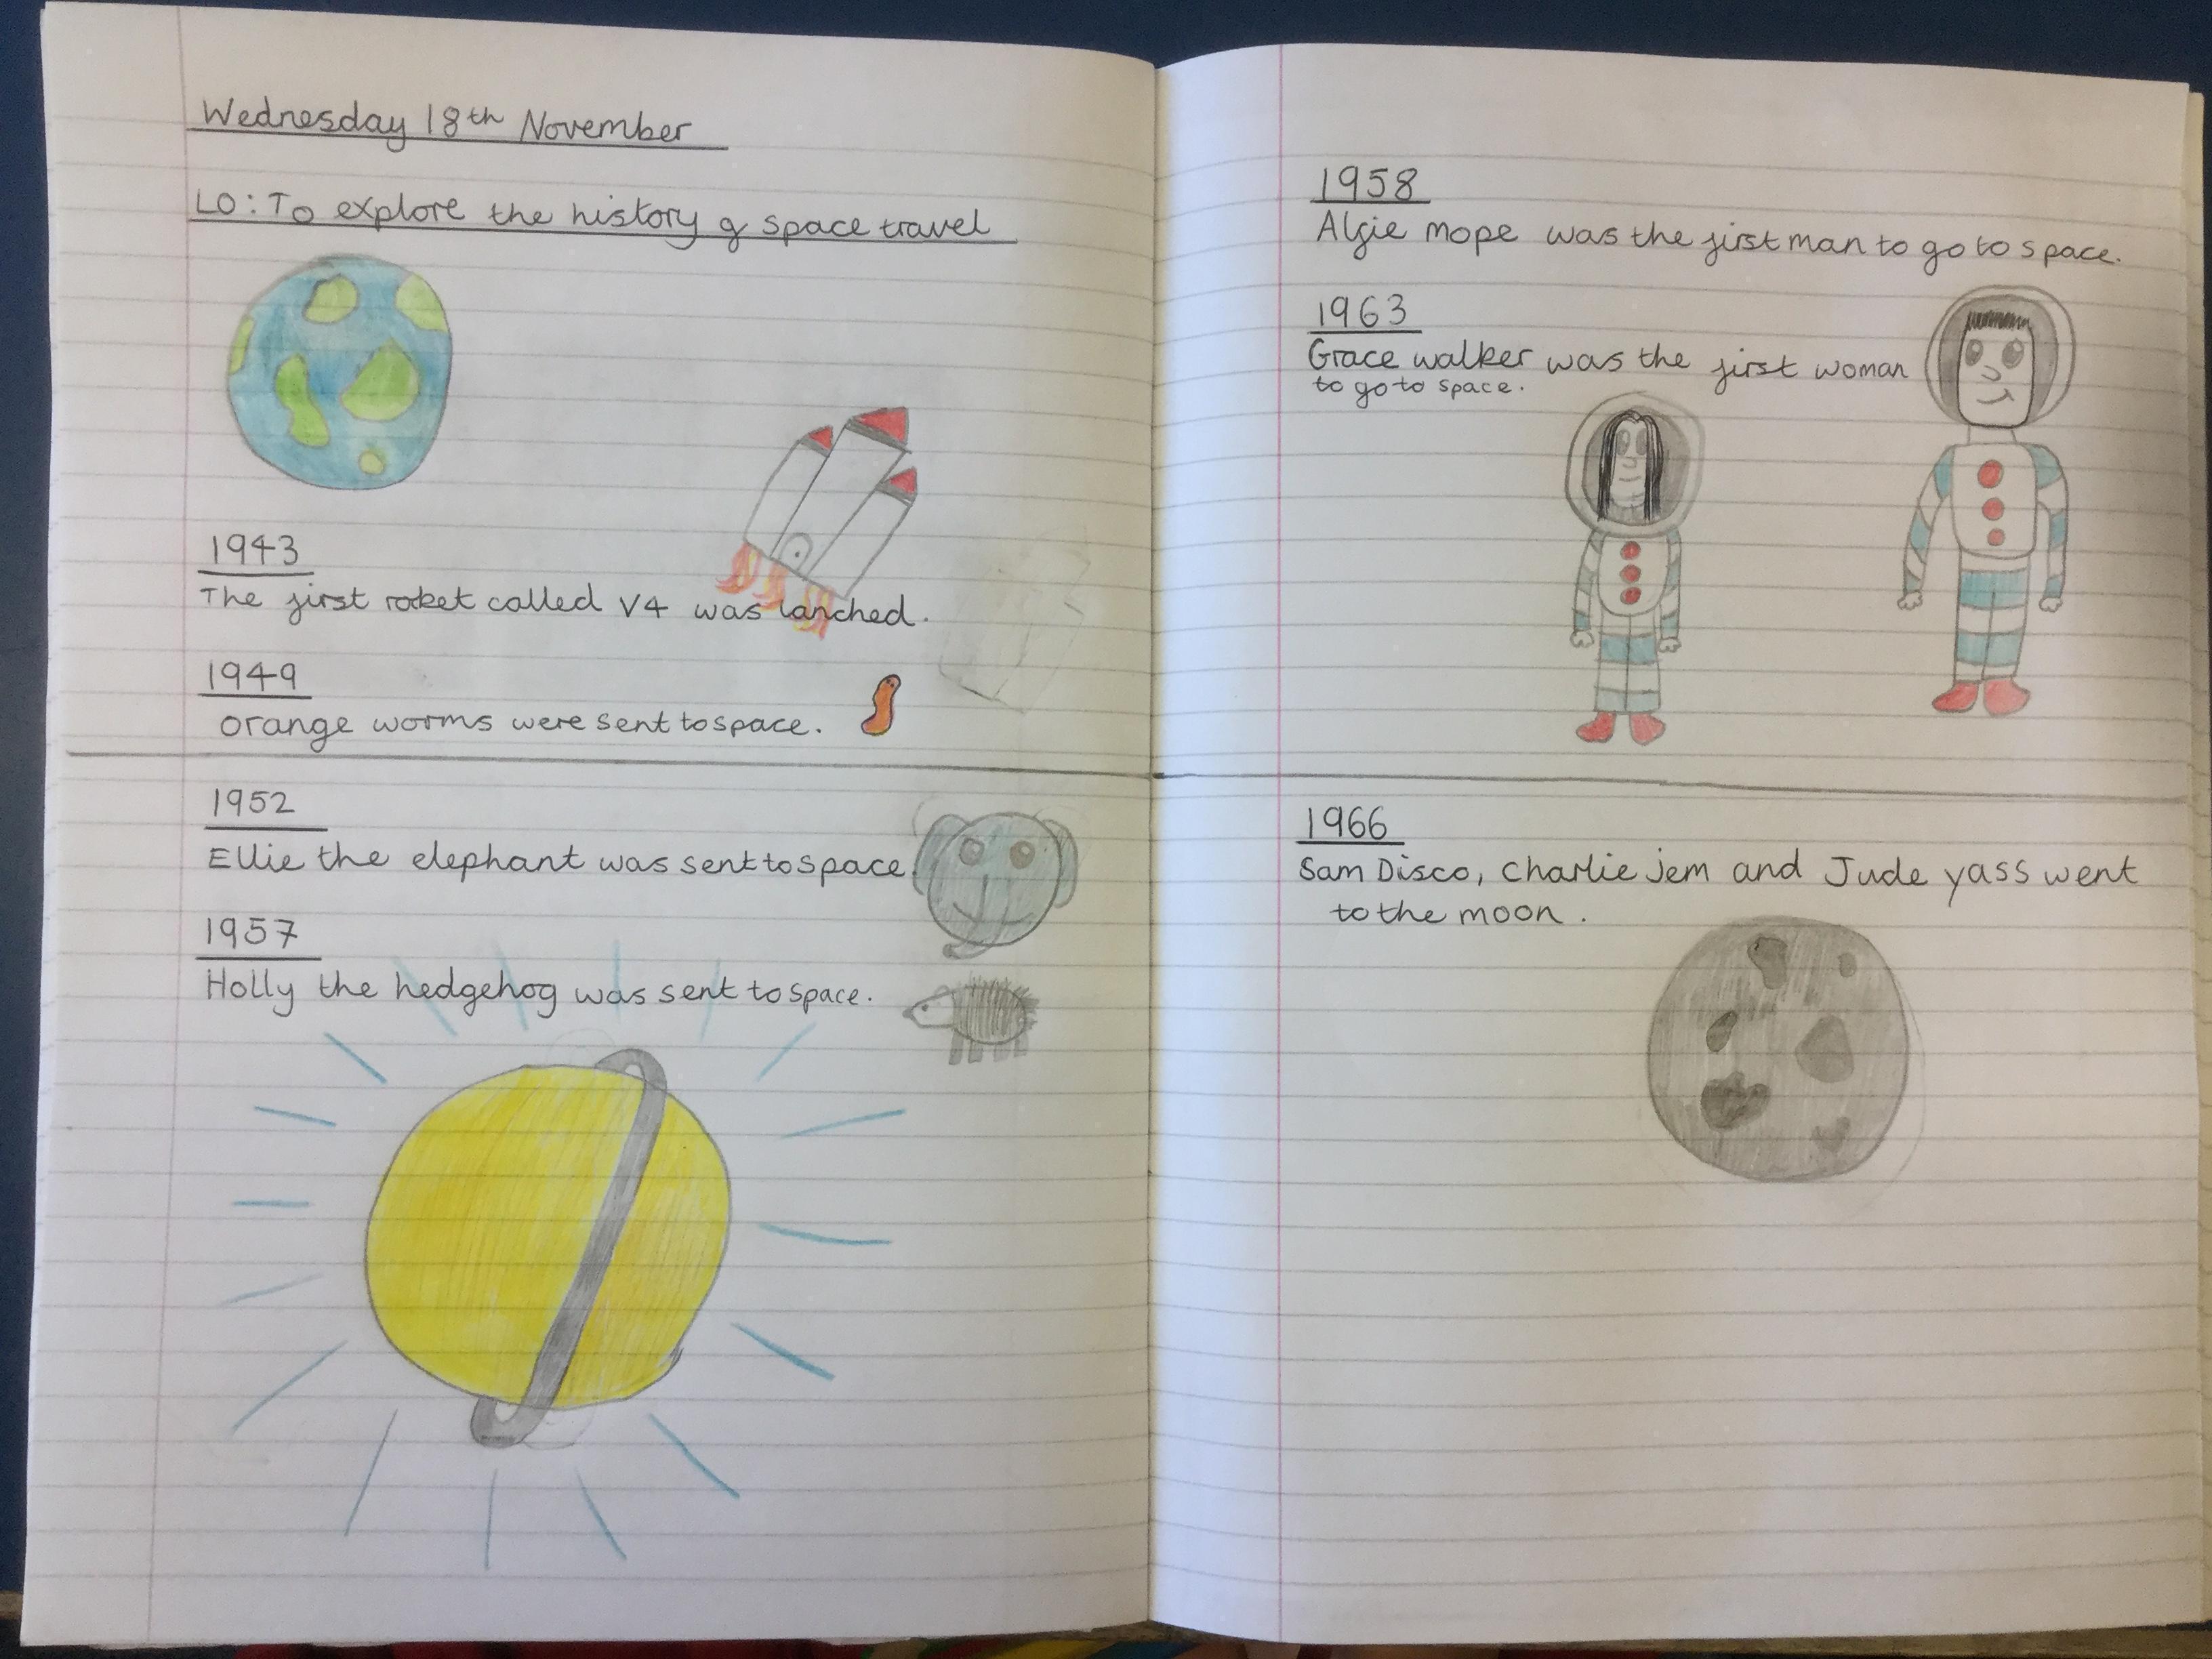 Wednesday 18th November
LO: To explore the history of space travel
1943
The first rocket called V4 was lanched.
1949
orange worms were sent to space.
1952
Ellie the elephant was sent to space.
1957
Holly the hedgehog was sent to space.
1958
Alfie mope was the first man to go to space.
1963
Grace walker was the first woman
to go to space.
1966
Sam Disco, charlie jem and Jude yass went
to the moon.